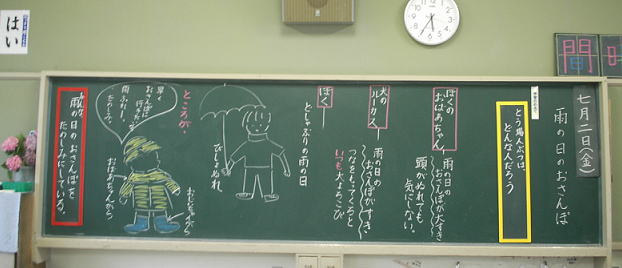 七月二日(金)
雨の日のおさんぽ
とう場人ぶつは、
どんな人だろう
ぼくの
おばあちゃん
雨の日の
おさんぽが大すき
頭がぬれても
気にしない。
犬の
ルーカス
雨の日の
おさんぽがすき
つなをもってくると
いつも大よろこび
ぼく
どしゃぶりの雨の日
びしょぬれ
ところが、
早く
おさんぽに
行きたいな。
雨ふれー。
たのしみ。
おじいちゃんから
おばあちゃんから
雨の日のおさんぽを
たのしみにしている。
はい
間
時